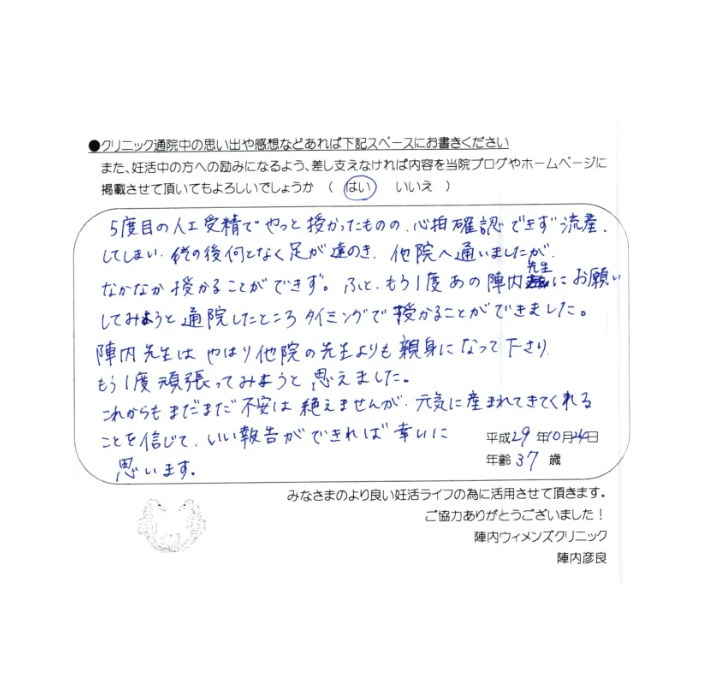 ●クリニック通院中の思い出や感想などあれば下記スペースにお書きください
また、妊活中の方への励みになるよう、差し支えなければ内容を当院ブログやホームページに
掲載させて頂いてもよろしいでしょうか ( はい いいえ )
5度目の人工受精でやっと授かったものの、心拍確認できず流産、
してしまい、その後何となく足が遠のき、他院へ通いましたが、
なかなか授かることができず。ふと、もう1度あの陣内先生にお願い
してみようと通院したところタイミングで授かることができました。
陣内先生はやはり他院の先生よりも親身になって下さり、
もう1度頑張ってみようと思えました。
これからもまだまだ不安は絶えませんが、元気に産まれてきてくれる
ことを信じて、いい報告ができれば幸いに
思います。
平成29年10月24日
年齢37歳
みなさまのより良い妊活ライフの為に活用させて頂きます。
ご協力ありがとうございました!
陣内ウィメンズクリニック
陣内彦良